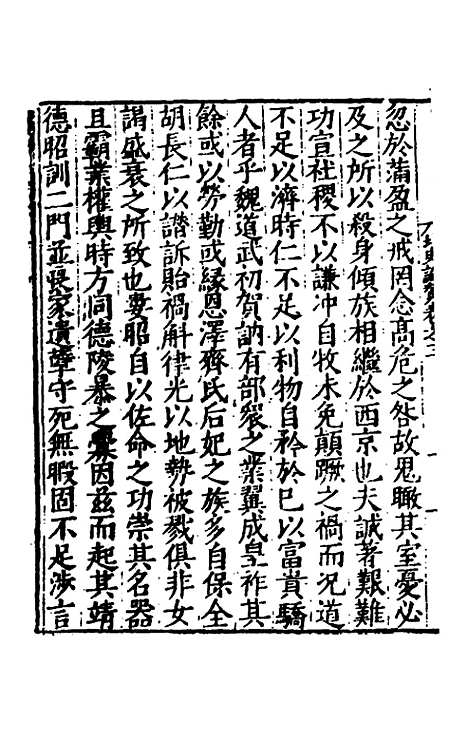 忽於蒲盈之戒罔念髙危之咎故鬼瞰其室憂必
及之所以殺身傾族相繼於西京也夫誠著艱難
功宣社稷不以謙冲自牧未免顛蹶之禍而况道
不足以濟時仁不足以利物自矜於巳以富貴驕
人者乎魏道武初賀訥有部衆之業翼成皇祚其
餘或以勞勤或緣恩澤齊氏后妃之族多自保全
胡長仁以譖訴貽禍斛律光以地勢被戮俱非女
謁盛衰之所致也婁昭自以佐命之功崇其名器
且霸業權輿時方同德陵暴之釁因茲而起其靖
德昭訓二門並良家遺孽守死無暇固不足涉言